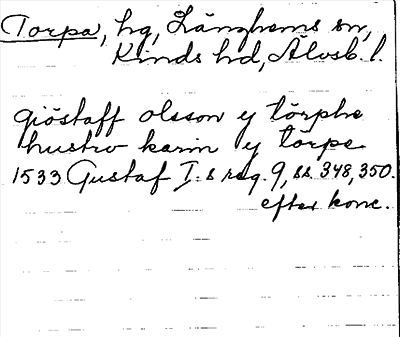 Torpa, hg, Länghems sn,
Kinds hd, Älvsb. l.
giöstaff olsson y törphe
hustro karin y törpe
1533 Gustaf I:s reg. 9, ss. 348, 350.
efter konc.